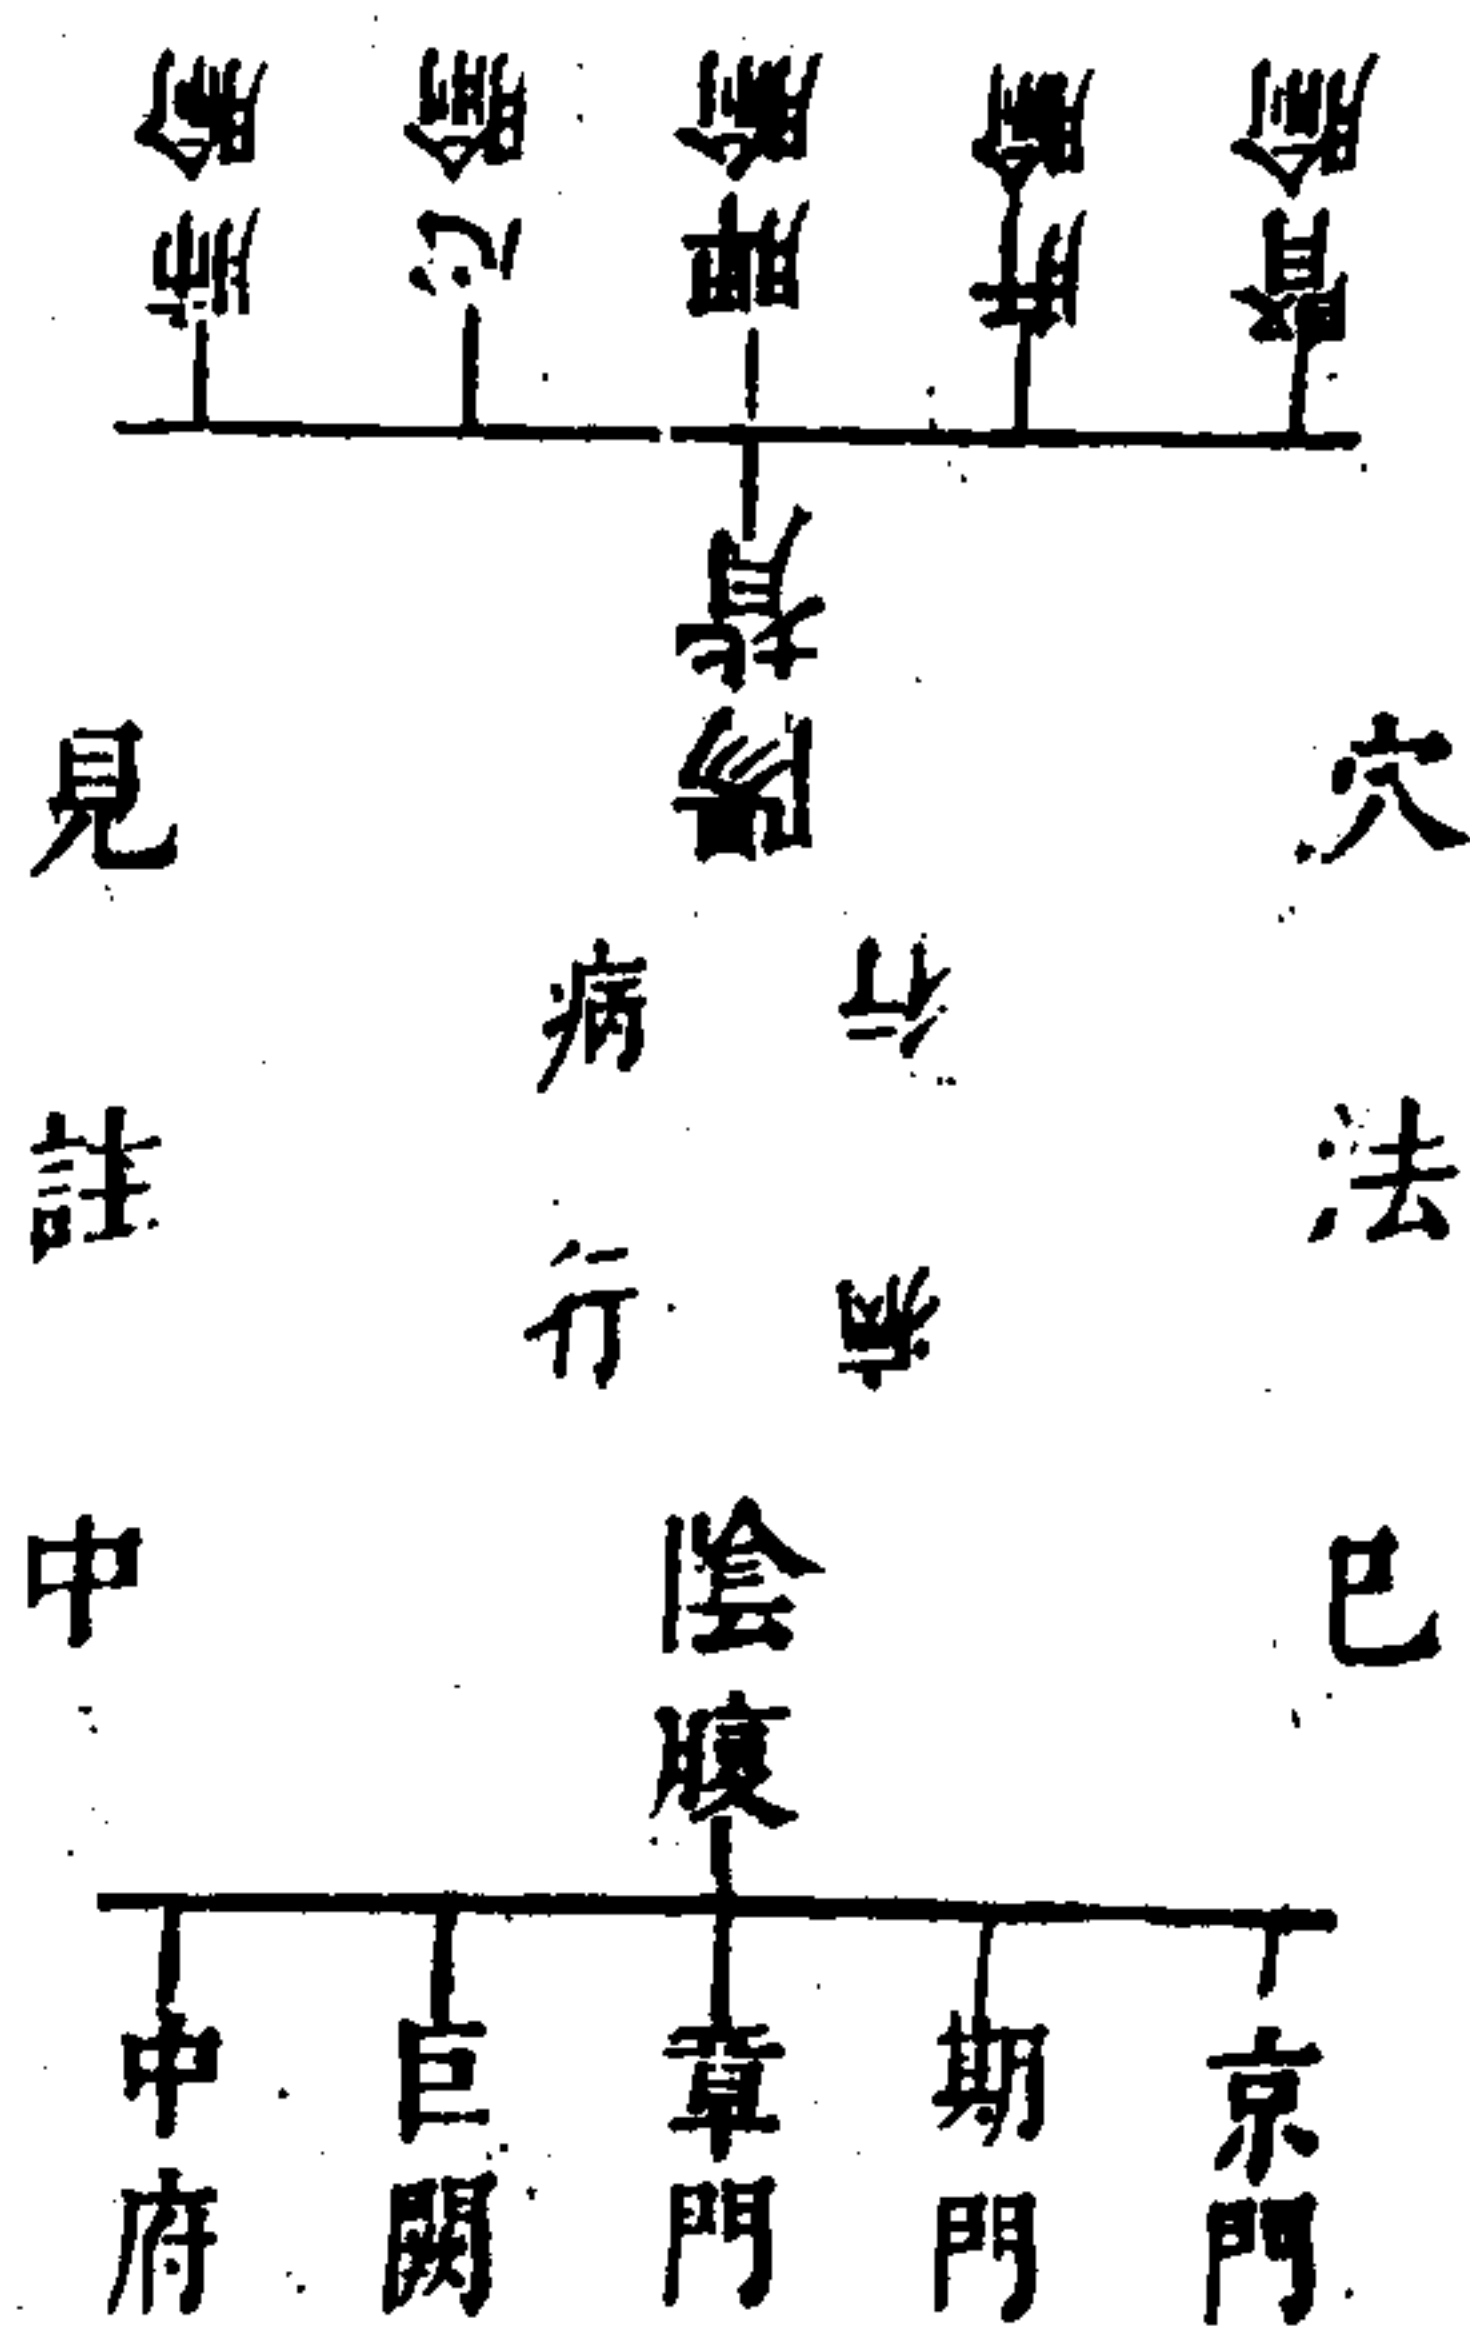 腎腧
肝腧
脾腧
心腧
肺腧
背陽
穴法巳
病行
病行
見註中
陰腹
京門
期門
章門
巨闕
中府